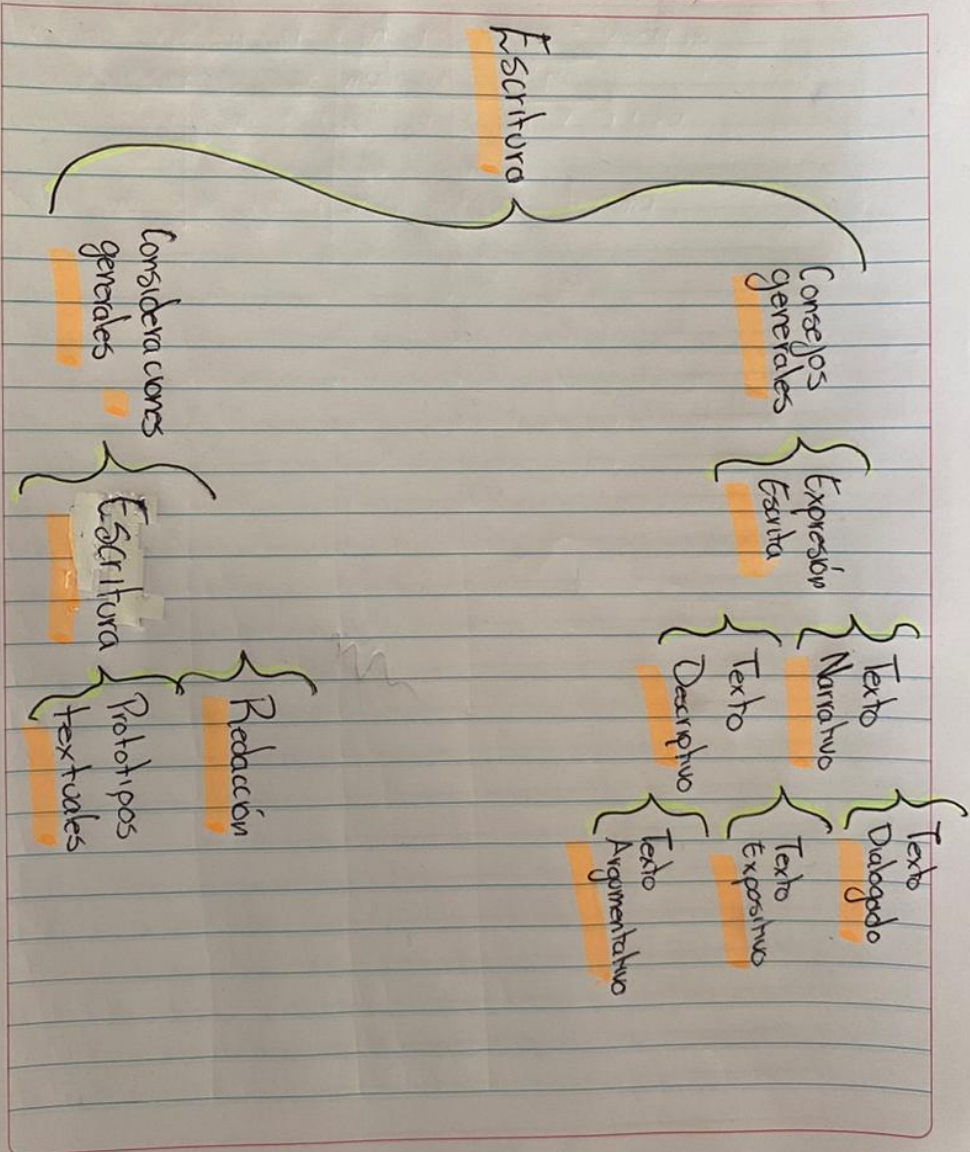 Escritura
Consejos
generales
Expresión
Escrita
Texto
Narrativo
Texto
Descriptivo
Texto
Dialogado
Texto
Expositivo
Texto
Argumentativo
Consideraciones
generales
Escritura
Redacción
Prototipos
textuales